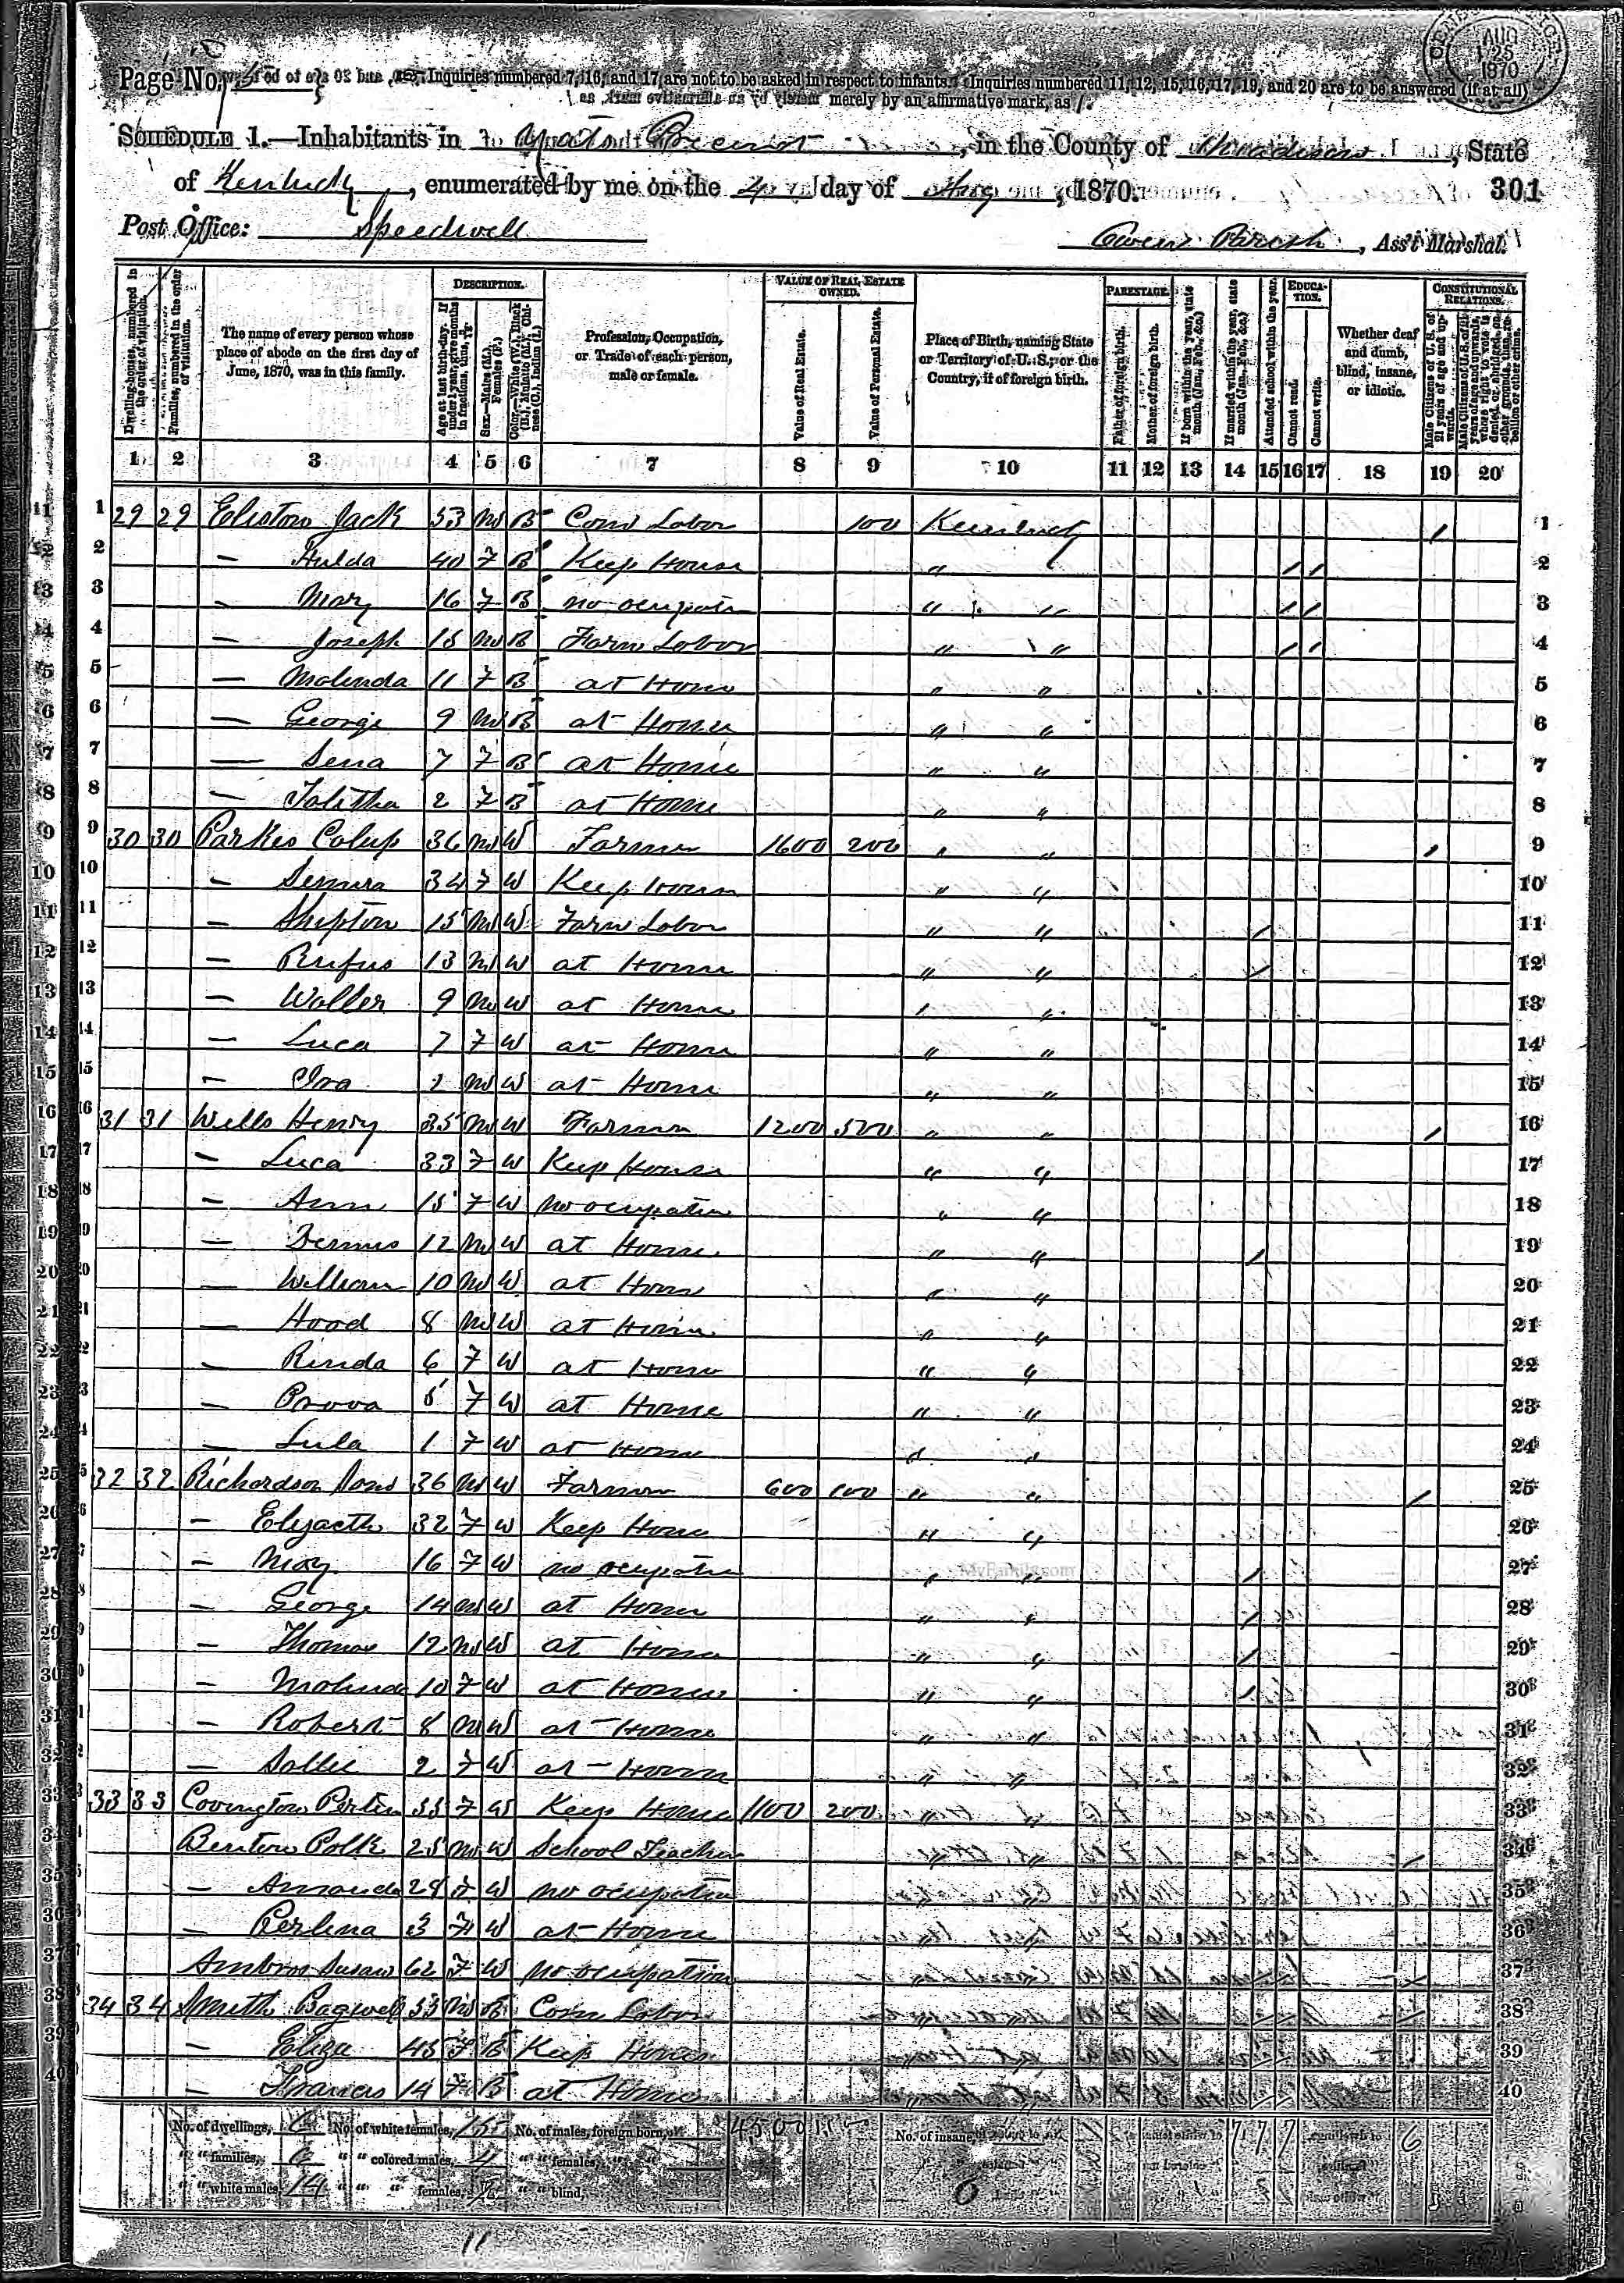 Page No. 5
Inquiries numbered 7, 16, and 17 are not to be asked in respect to infants. Inquiries numbered 11, 12, 15, 16, 17, 19, and 20 are to be answered (if at all)
merely by an affirmative mark, as /.
AUG 25 1870
SCHEDULE 1.—Inhabitants in Precinct, in the County of Madison, State
of Kentucky, enumerated by me on the 4 day of Aug, 1870.
301
Post Office: Speedwell
Owen Parish, Ass't Marshal.
Dwelling-houses, numbered in the order of visitation.
Families, numbered in the order of visitation.
The name of every person whose place of abode on the first day of June, 1870, was in this family.
DESCRIPTION.
Age at last birth-day. If under 1 year, give months in fractions, thus,
Sex.—Males (M.), Females (F.)
Color.—White (W.), Black (B.), Mulatto (M.), Chinese (C.), Indian (I.)
Profession, Occupation, or Trade of each person, male or female.
VALUE OF REAL ESTATE OWNED.
Value of Real Estate.
Value of Personal Estate.
Place of Birth, naming State or Territory of U. S.; or the Country, if of foreign birth.
PARENTAGE.
Father of foreign birth.
Mother of foreign birth.
If born within the year, state month (Jan., Feb., &c.)
If married within the year, state month (Jan., Feb., &c.)
Attended school within the year.
EDUCATION.
Cannot read.
Cannot write.
Whether deaf and dumb, blind, insane, or idiotic.
CONSTITUTIONAL RELATIONS.
Male Citizens of U. S. of 21 years of age and upwards.
Male Citizens of U. S. of 21 years of age and upwards, whose right to vote is denied or abridged on other grounds than rebellion or other crime.
1 2 3 4 5 6 7 8 9 10 11 12 13 14 15 16 17 18 19 20
1 29 29 Eliston Jack 53 M B Com Labor 100 Kentucky / 1
2 — Hulda 40 F B Keep House " / / 2
3 — Mary 16 F B no ocupatn " " / / 3
4 — Joseph 15 M B Farm Labor " " / / 4
5 — Malinda 11 F B at Home " " 5
6 — George 9 M B at Home " " 6
7 — Sena 7 F B at Home " " 7
8 — Talitha 2 F B at Home " " 8
9 30 30 Parkes Colup 36 M W Farmer 1600 200 " " / 9
10 — Semira 34 F W Keep House " " 10
11 — Shipton 15 M W Farm Labor " " / 11
12 — Rufus 13 M W at Home " " / 12
13 — Waller 9 M W at Home " " 13
14 — Luca 7 F W at Home " " 14
15 — Ira 2 M W at Home " " 15
16 31 31 Wells Henry 35 M W Farmer 1200 500 " " / 16
17 — Luca 33 F W Keep House " " 17
18 — Ann 15 F W no ocupation " " 18
19 — Dennis 12 M W at Home " " / 19
20 — William 10 M W at Home " " 20
21 — Hood 8 M W at Home " " 21
22 — Rinda 6 F W at Home " " 22
23 — Prova 5 F W at Home " " 23
24 — Lula 1 F W at Home " " 24
25 32 32 Richardson 36 M W Farmer 600 100 " " / 25
26 — Elizaeth 32 F W Keep Home " " 26
27 — May 16 F W no ocupatn " " / 27
MyFamily.com
28 — George 14 M W at Home " " / 28
29 — Thomas 12 M W at Home " " / 29
30 — Malinda 10 F W at Home " " / 30
31 — Robert 8 M W at Home " " 31
32 — Sallie 2 F W at Home " " 32
33 33 33 Covington 55 F W Keep Home 1100 200 " " 33
34 Benton Polk 25 M W School Teacher " " / 34
35 — Amanda 28 F W no ocupation 35
36 — Perlina 3 F W at Home 36
37 Ambros Susan 62 F W no occupation 37
38 34 34 Smith Bagwell 53 M B Com Labor / 38
39 — Eliza 45 F B Keep House 39
40 — Francis 14 F B at Home 40
No. of dwellings, 6 No. of white females, 15 No. of males, foreign born, 4500 No. of insane, 7 7 6
" " families, 6 " " colored males, 4 " " females, " "
" " white males, 14 " " " females, " " blind, 0
11